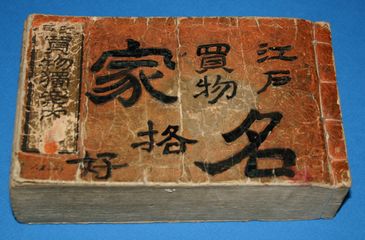 江戸
名
買物
格
家
好
買物獨案内